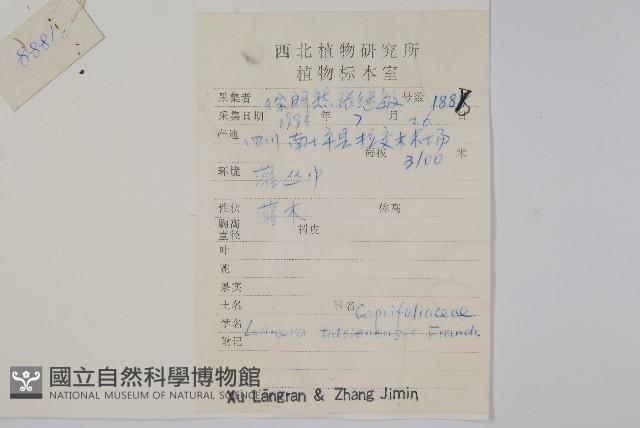 西北植物研究所
植物标本室
采集者 徐朗然 张继敏 号数 188
采集日期 1993 年 7 月 26 日
产地 四川 南
海拔 3100 米
环境 灌丛中
性状 灌木 体高
胸高
直径 树皮
叶
花
果实
土名 科名 Caprifoliaceae
学名 Lonicera tatsienensis Franch.
附记
Xu Langran & Zhang Jimin
國立自然科學博物館
NATIONAL MUSEUM OF NATURAL SCIENCE